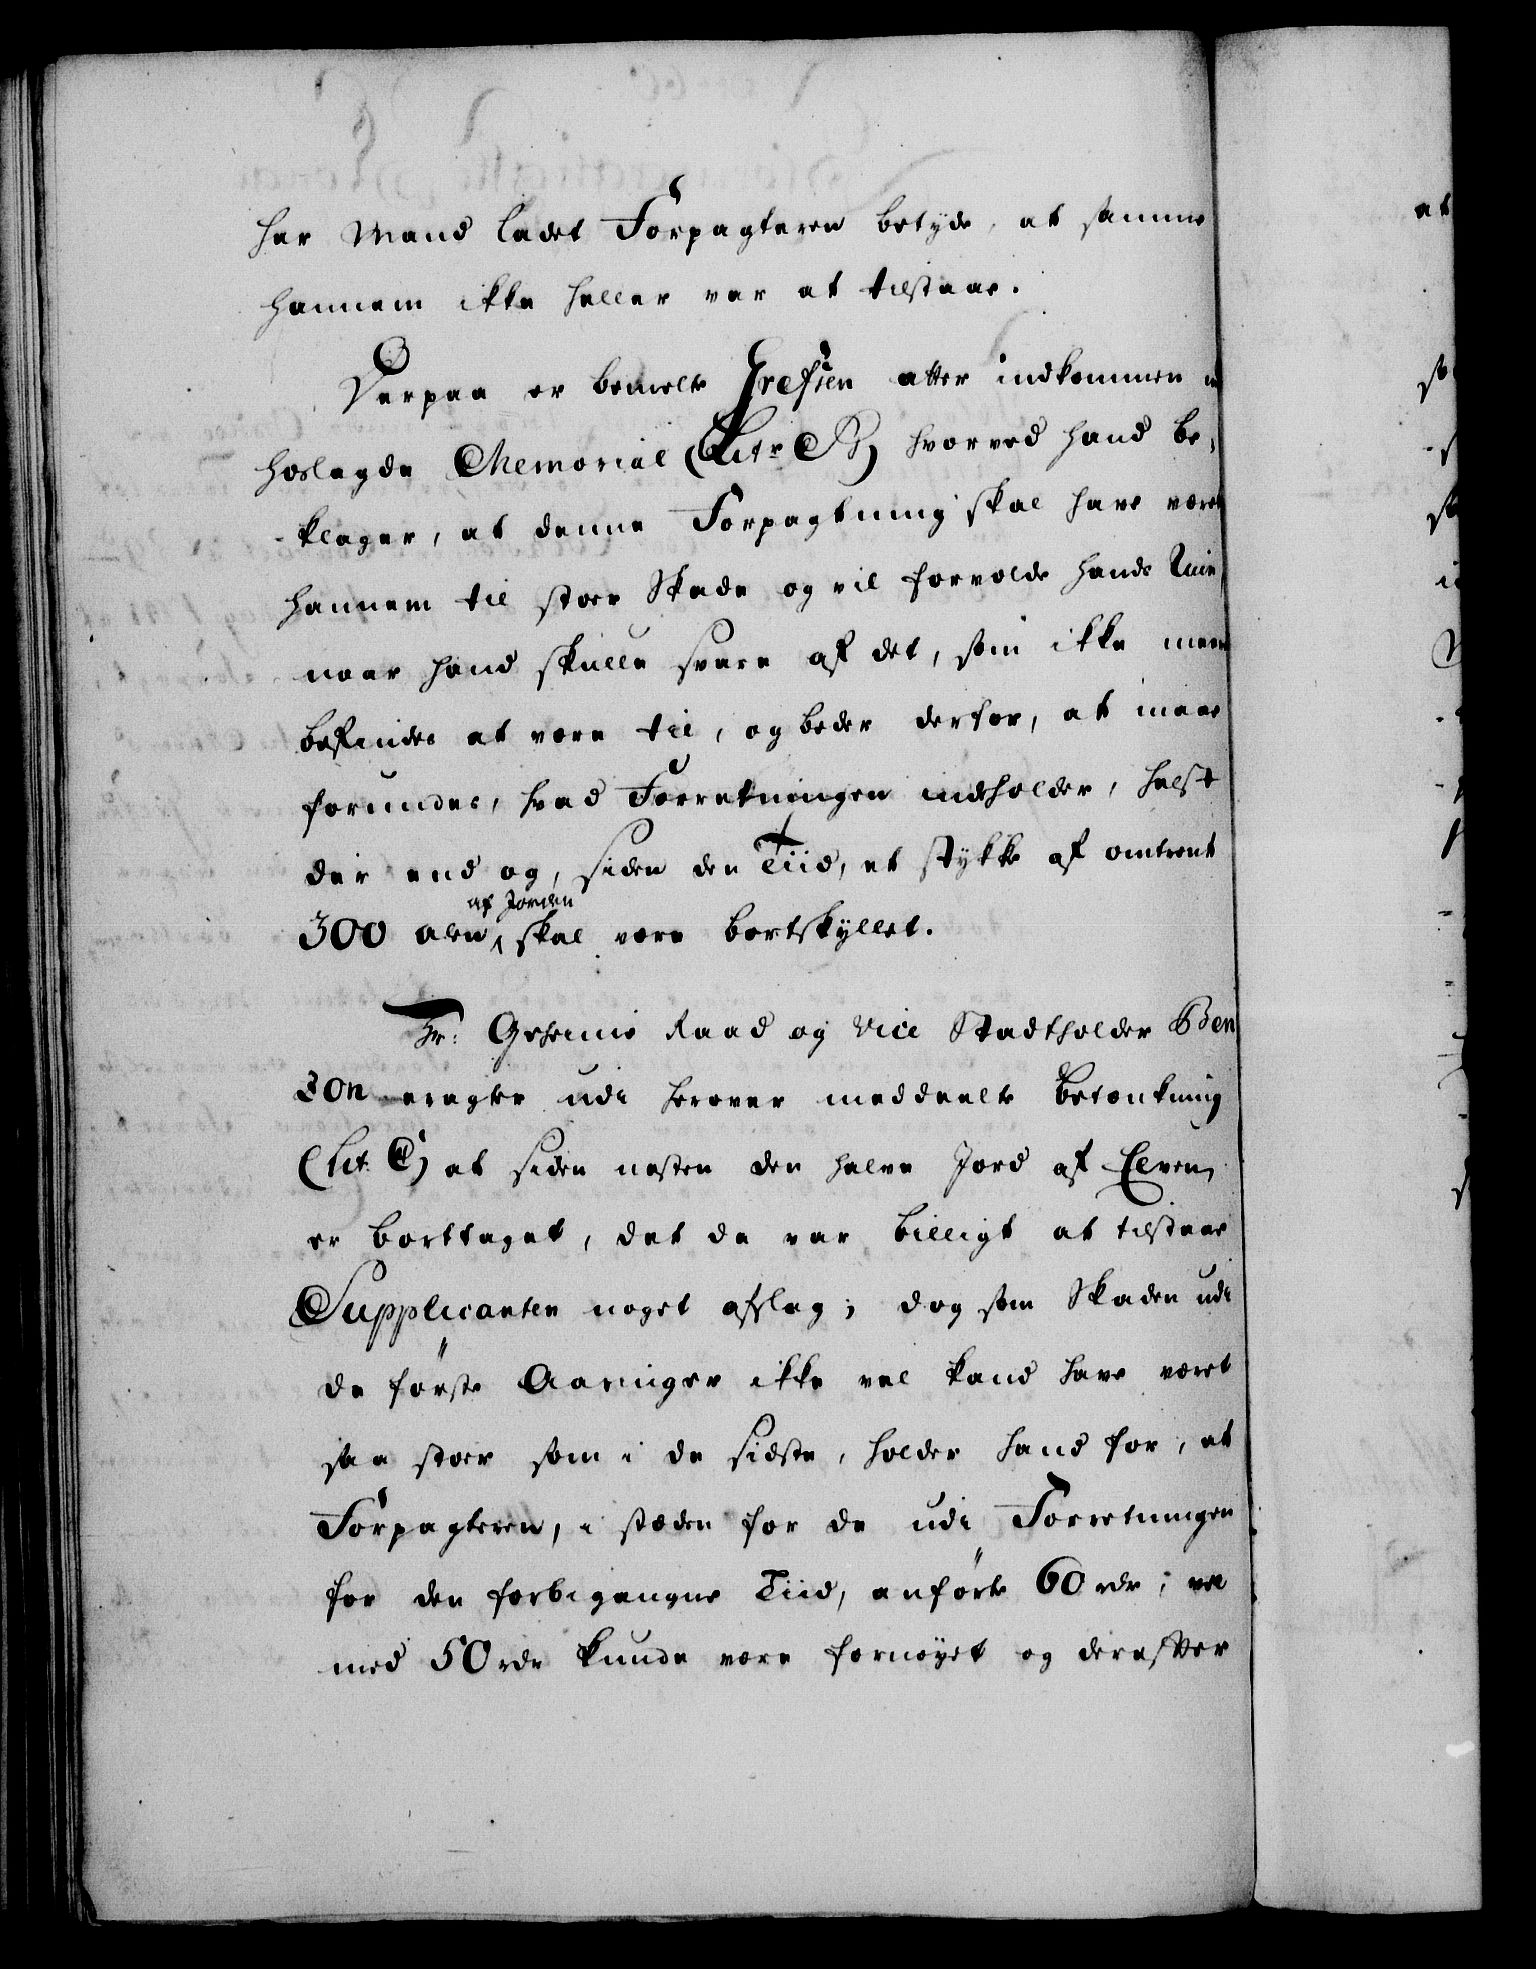 har Mand ladet Forpagteren betyde, at samme
hannem ikke heller var at tilstaae.
Derpaa er bemelte Grefsen atter indkommen
hoslagde Memorial (Litr B) hvorved hand be-
-klager, at denne Forpagtning skal have været
hannem til stoer Skade og vil forvolde hands Ruin
naar hand skulle svare af det, som ikke meere
befindes at være til, og beder derfor, at maae
forundes, hvad Forretningen indeholder, helst
der end og, siden den Tiid, et stykke af omtrent
af Jorden
300 alen, skal være bortskyllet.
Hr: Geheime Raad og Vice Stadtholder Ben
zon eragter udi herover meddeelte Betænkning
(Lit. C) at siden næsten den halve Jord af Elven,
er borttaget, det da var billigt at tilstaae
Supplicanten noget afslag; dog som Skaden udi
de første Aaringer ikke vel kand have været
saa stoer som i de sidste, holder hand for, at
Forpagteren, i stæden for de udi Forretningen
for den forbigangne Tiid, anførte 60 rdr, vel
med 50 rdr kunde være fornøyet og derefter
at